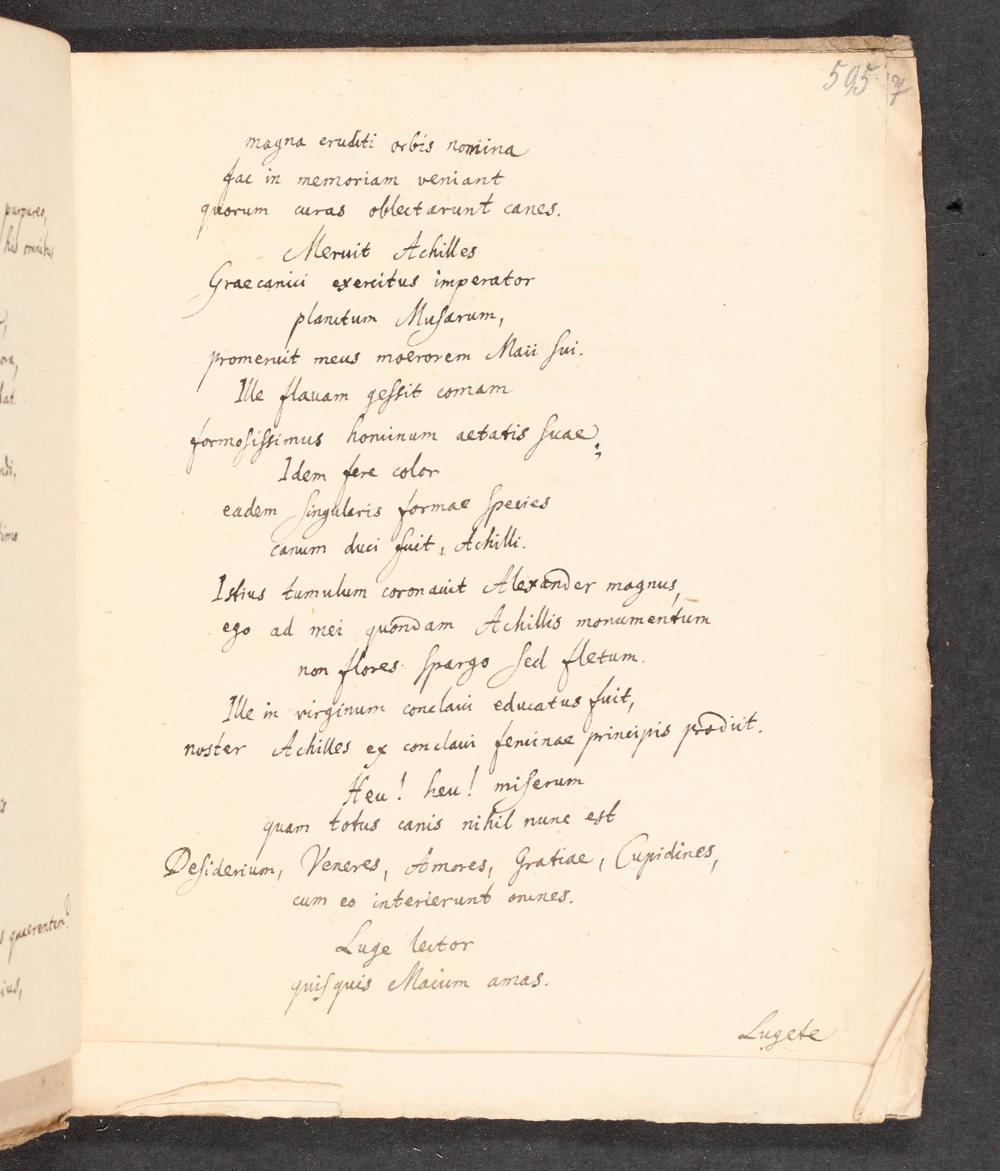 595
magna eruditi orbis nomina
fac in memoriam veniant
quorum curas oblectarunt canes.
Meruit Achilles
Graecanici exercitus imperator
planctum Musarum,
promeruit meus moerorem Maii sui.
Ille flauam gessit comam
formosissimus hominum aetatis suae;
Idem fere color
eadem singularis formae species
canum duci fuit, Achilli.
Istius tumulum coronauit Alexander magnus,
ego ad mei quondam Achillis monumentum
non flores spargo sed fletum.
Ille in virginum conclaui educatus fuit,
noster Achilles ex conclaui feminae principis prodiit.
Heu! heu! miserum
quam totus canis nihil nunc est
Desiderium, Veneres, Amores, Gratiae, Cupidines,
cum eo interierunt omnes.
Luge lector
quisquis Maium amas.
Lugete
purpureo,
his omnibus
quaerentem?